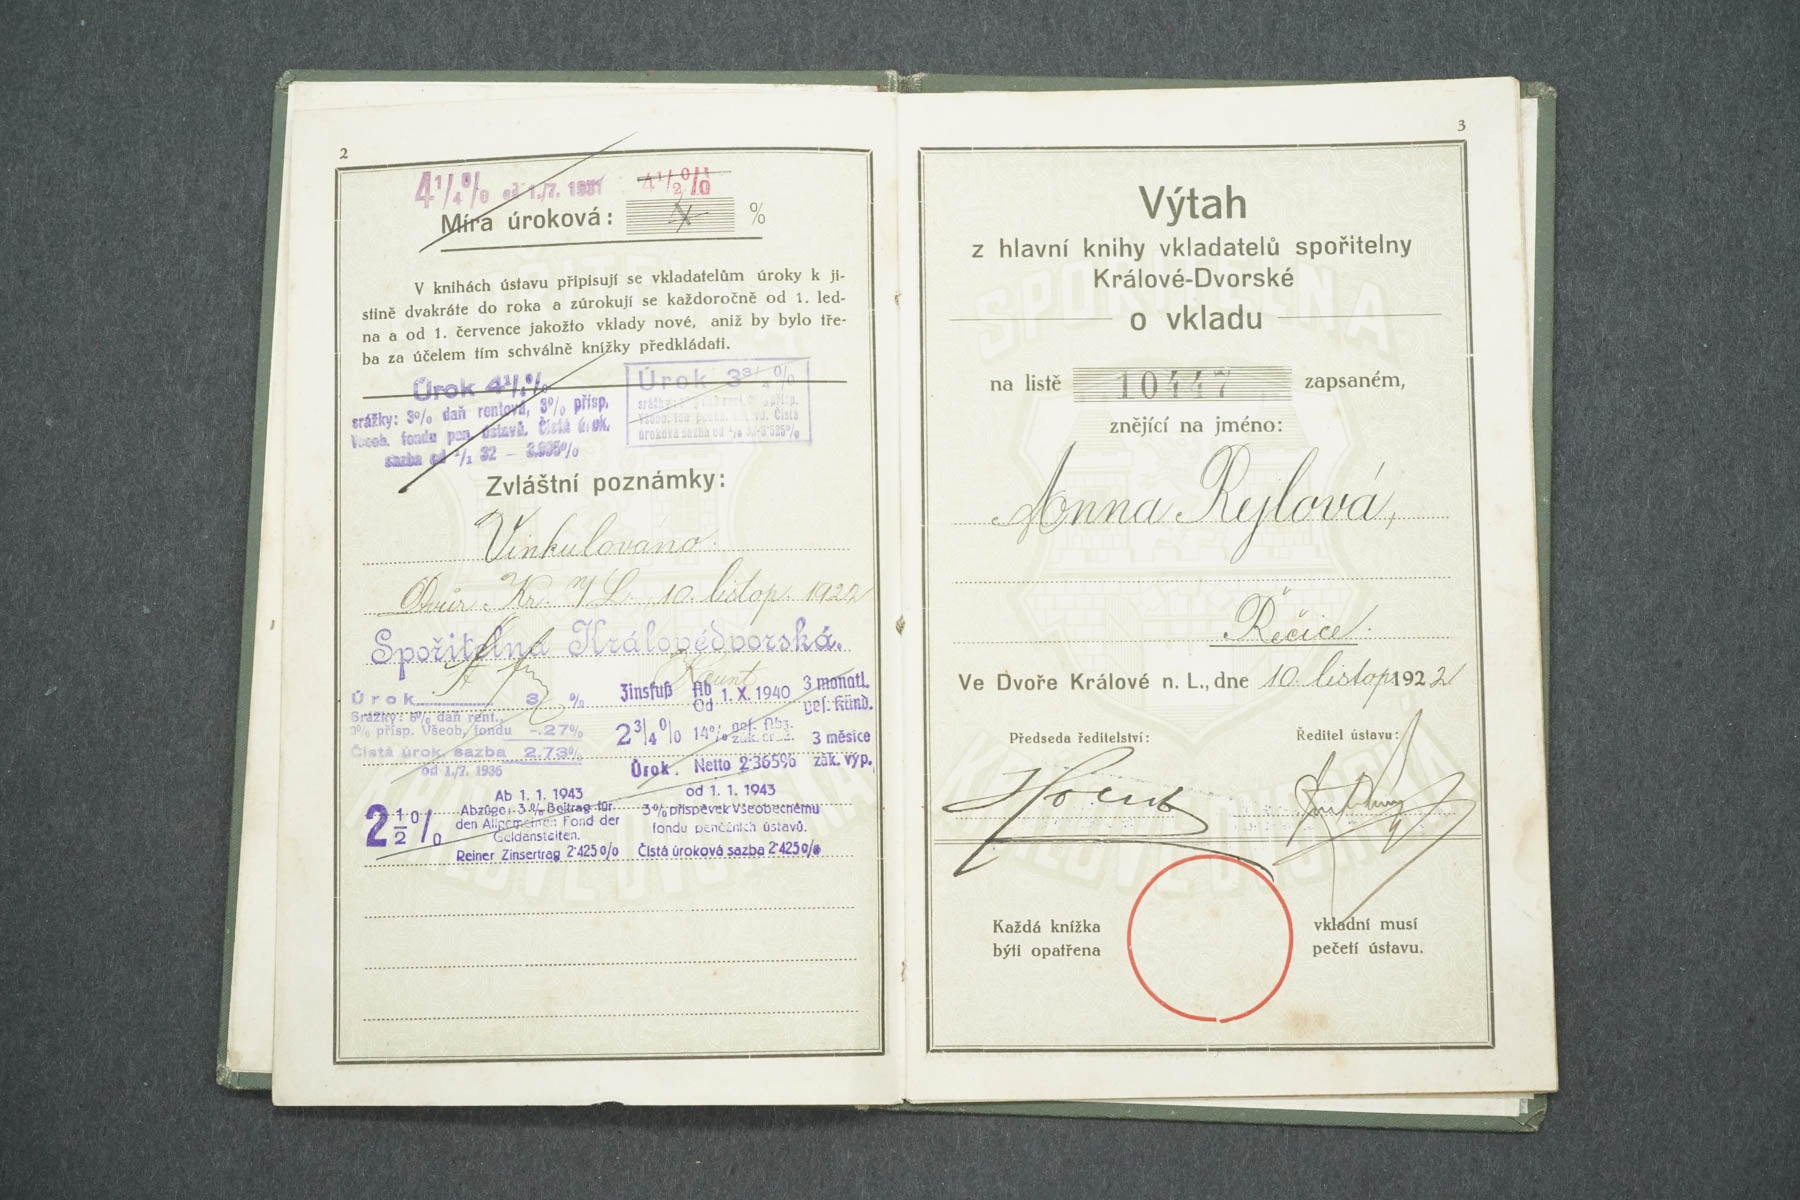 2
4¼% od 1./7. 1931 4½%
Míra úroková: %
V knihách ústavu připisují se vkladatelům úroky k ji-
stině dvakráte do roka a zúrokují se každoročně od 1. led-
na a od 1. července jakožto vklady nové, aniž by bylo tře-
ba za účelem tím schválně knížky předkládati.
Úrok 4½% Úrok 3¾%
srážky: 3% daň rentová, 3% přisp.
Všeob. fondu pen. ústavů. Čistá úrok.
sazba od 1/1 32 –
Zvláštní poznámky:
Vinkulováno.
Dvůr Kr. n/L., 10. listop. 1922
Spořitelna Královédvorská.
Úrok 3 %
Srážky: 5% daň rent.,
3% přisp. Všeob. fondu -.27%
Čistá úrok. sazba 2.73%
od 1./7. 1936
Zinsfuß Ab Od 1. X. 1940 3 monatl. ges. Künd.
2¾% 14% ges. Abz. zák. sraž. 3 měsíce
Úrok. Netto 2·365% zák. výp.
2½%
Ab 1. 1. 1943
Abzüge: 3% Beitrag für
den Allgemeinen Fond der
Geldanstalten.
Reiner Zinsertrag 2·425%
od 1. 1. 1943
3% příspěvek Všeobecnému
fondu peněžních ústavů.
Čistá úroková sazba 2·425%
3
Výtah
z hlavní knihy vkladatelů spořitelny
Králové-Dvorské
o vkladu
na listě 10447 zapsaném,
znějící na jméno:
Anna Rejlová,
Řečice.
Ve Dvoře Králové n. L., dne 10. listop. 1922
Předseda ředitelství: Ředitel ústavu:
Každá knížka vkladní musí
býti opatřena pečetí ústavu.